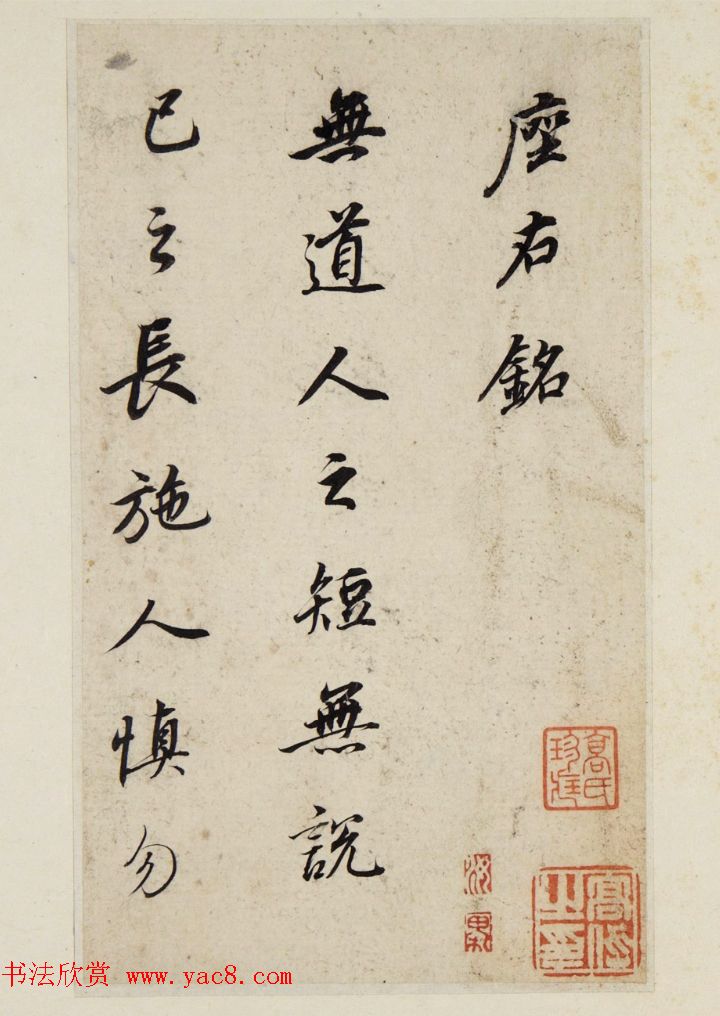 座右銘
無道人之短無說
己之長施人慎勿
書法欣賞 www.yac8.com